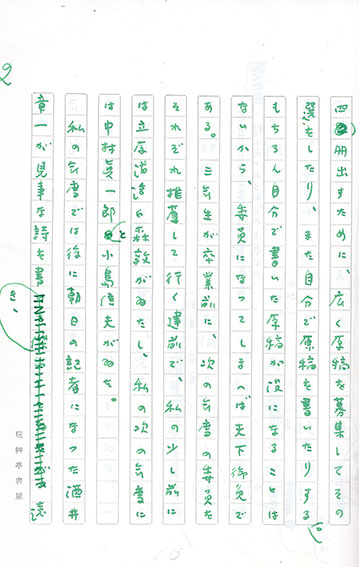 2
四冊出すために、広く原稿を募集してその
選をしたり、また自分で原稿を書いたりする。
もちろん自分で書いた原稿が没になることは
ないから、委員になってしまへば天下御免で
ある。三年生が卒業前に、次の年度の委員を
それぞれ推薦して行く建前で、私の少し前に
は立原道造や森敦がゐたし、私の次の年度に
は中村眞一郎と小島信夫がゐた。
私の年度では後に朝日の記者になった酒井
章一が見事な詩を書き、遠
玩艸亭書屋